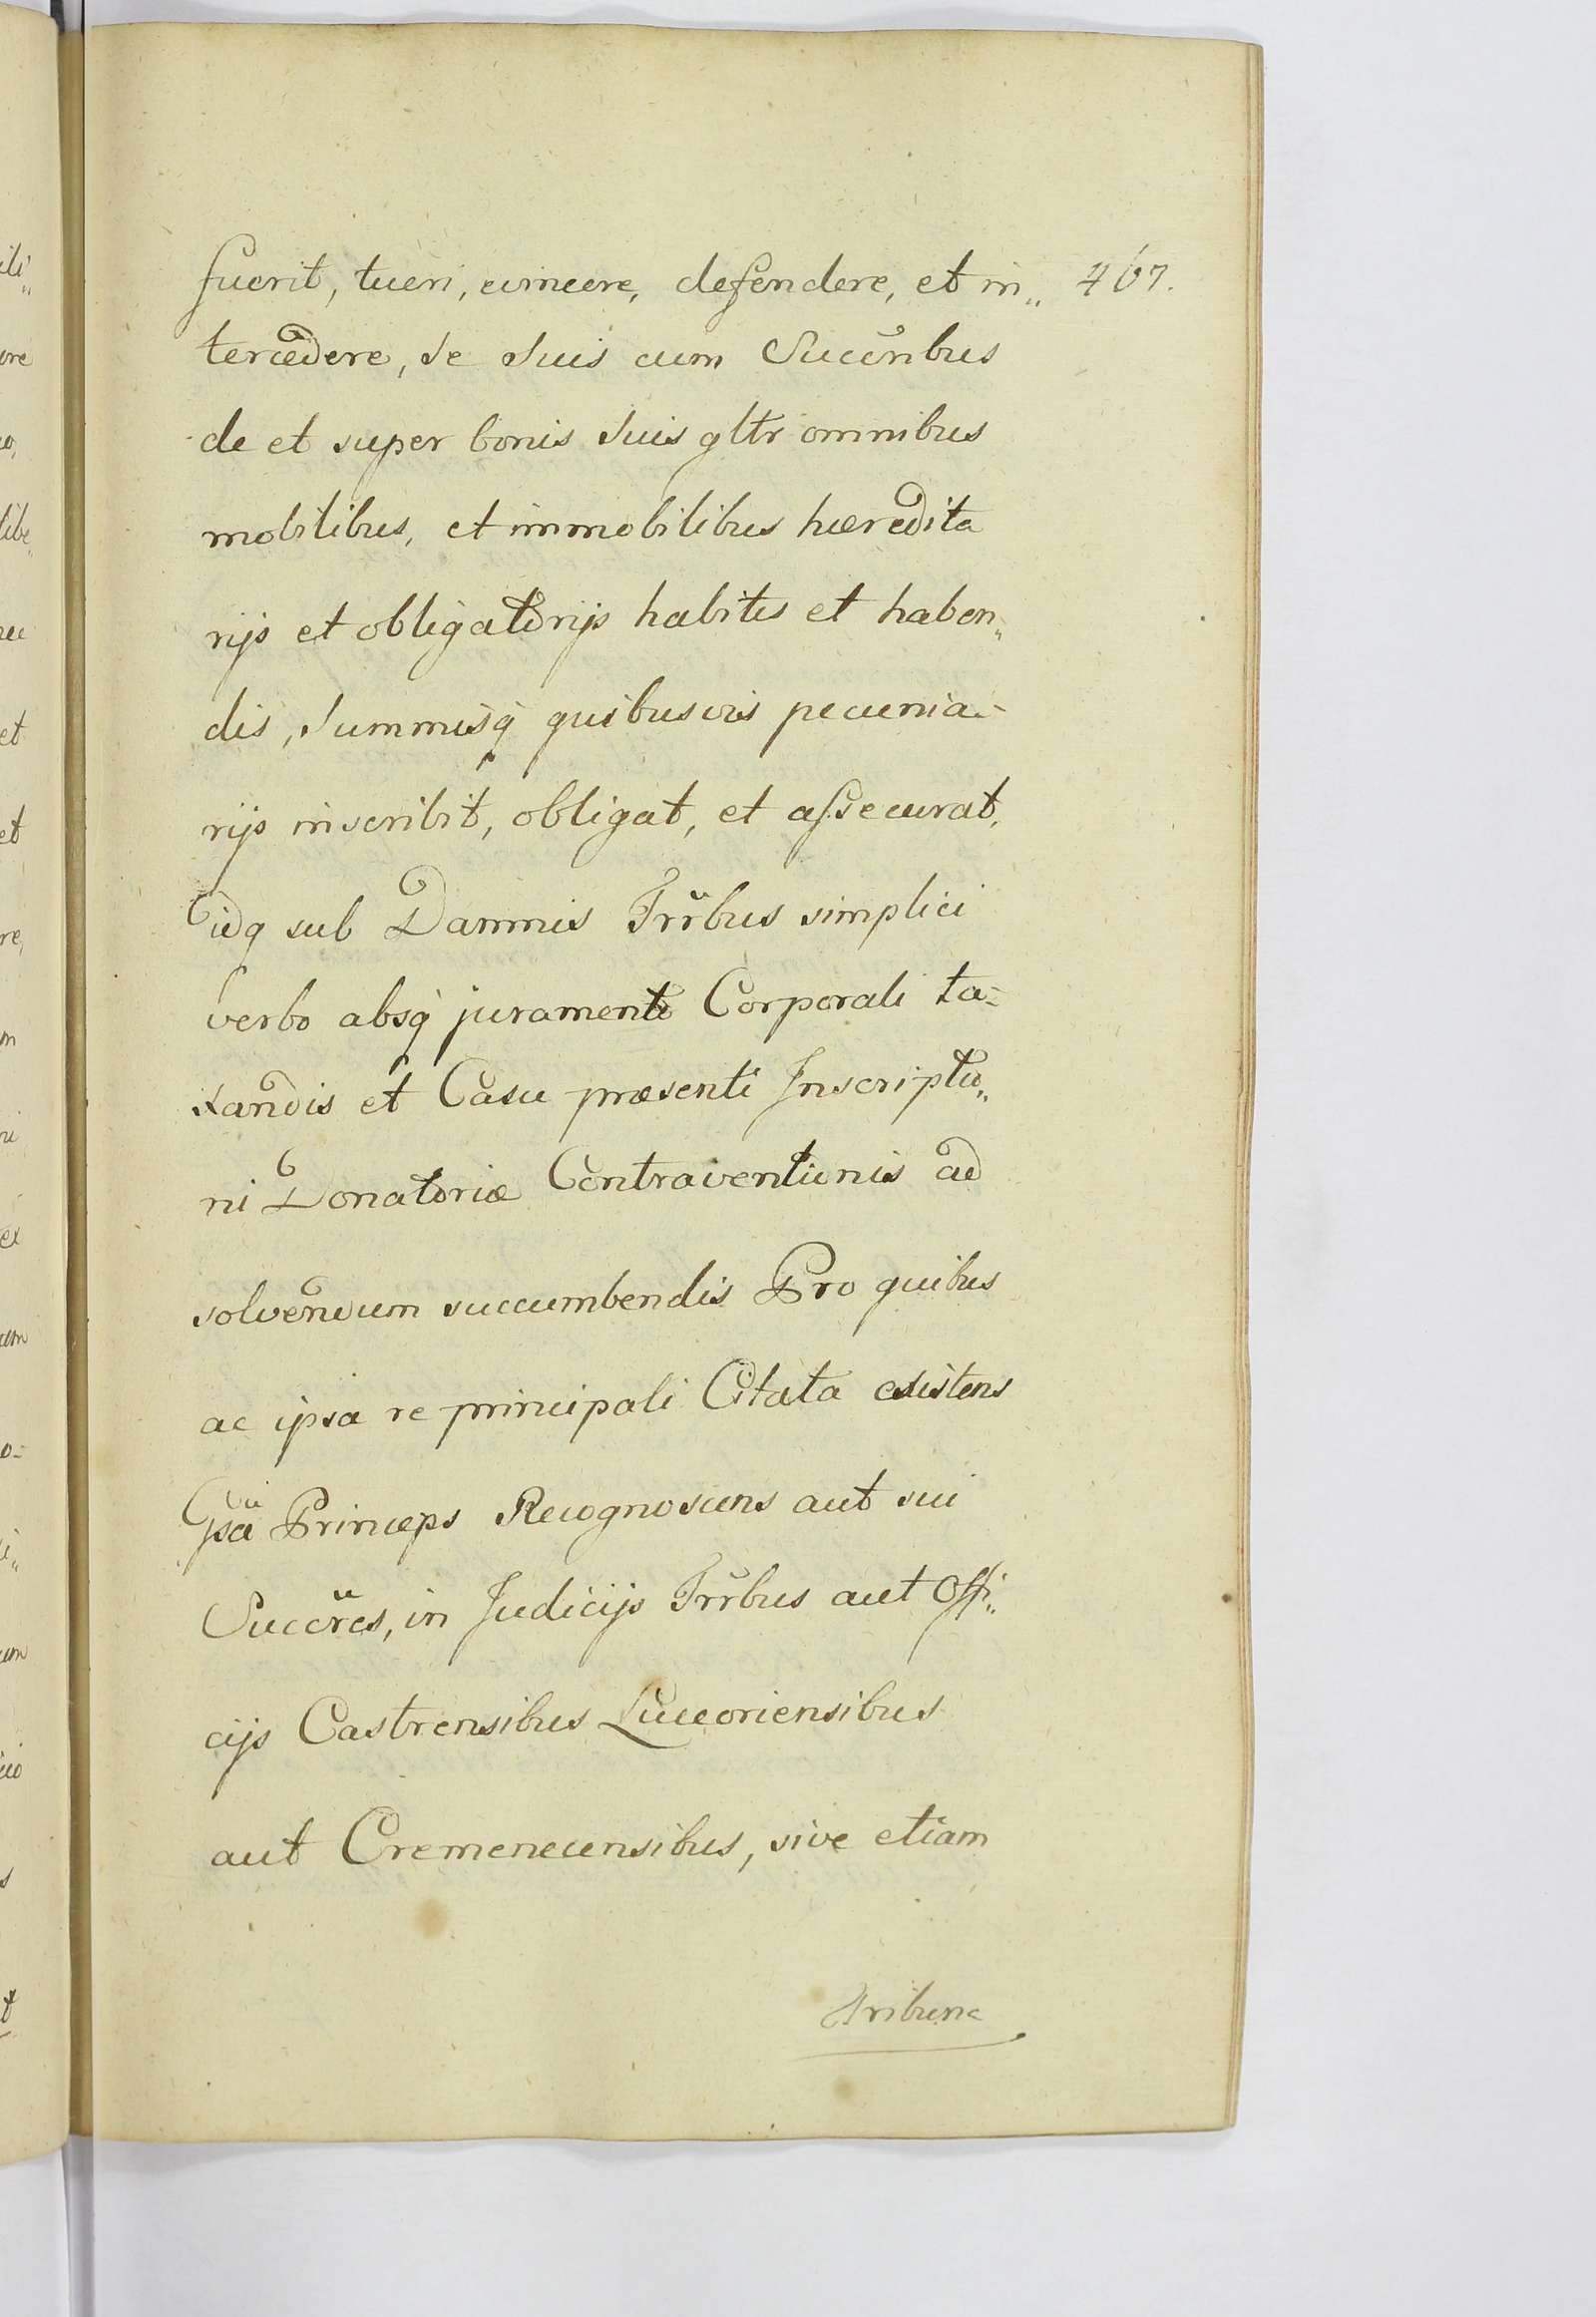 fuerit, tueri, evincere, defendere, et in„ 467.
tercedere, se suis cum Succ͠ribus
de et super bonis suis gltr omnibus
mobilibus, et immobilibus hæredita
rijs et obligatorijs habitis et haben„
dis, Summisq́ quibusvis pecunia-
rijs inscribit, obligat, et assecurat,
idq sub Damnis Trr̃bus simplici
verbo absq́ juramento Corporali ta=
xandis et Casu præsenti Inscriptio„
ni Donatoriæ Contraventionis ad
solvendum succumbendis Pro quibus
ac ipsa re principali Citata existens
Ipsa Princeps Recognoscens aut sui
Succr̃es, in Judicijs Trr̃bus aut Offi„
cijs Castrensibus Luceoriensibus
aut Cremenecensibus, sive etiam
Tribuna